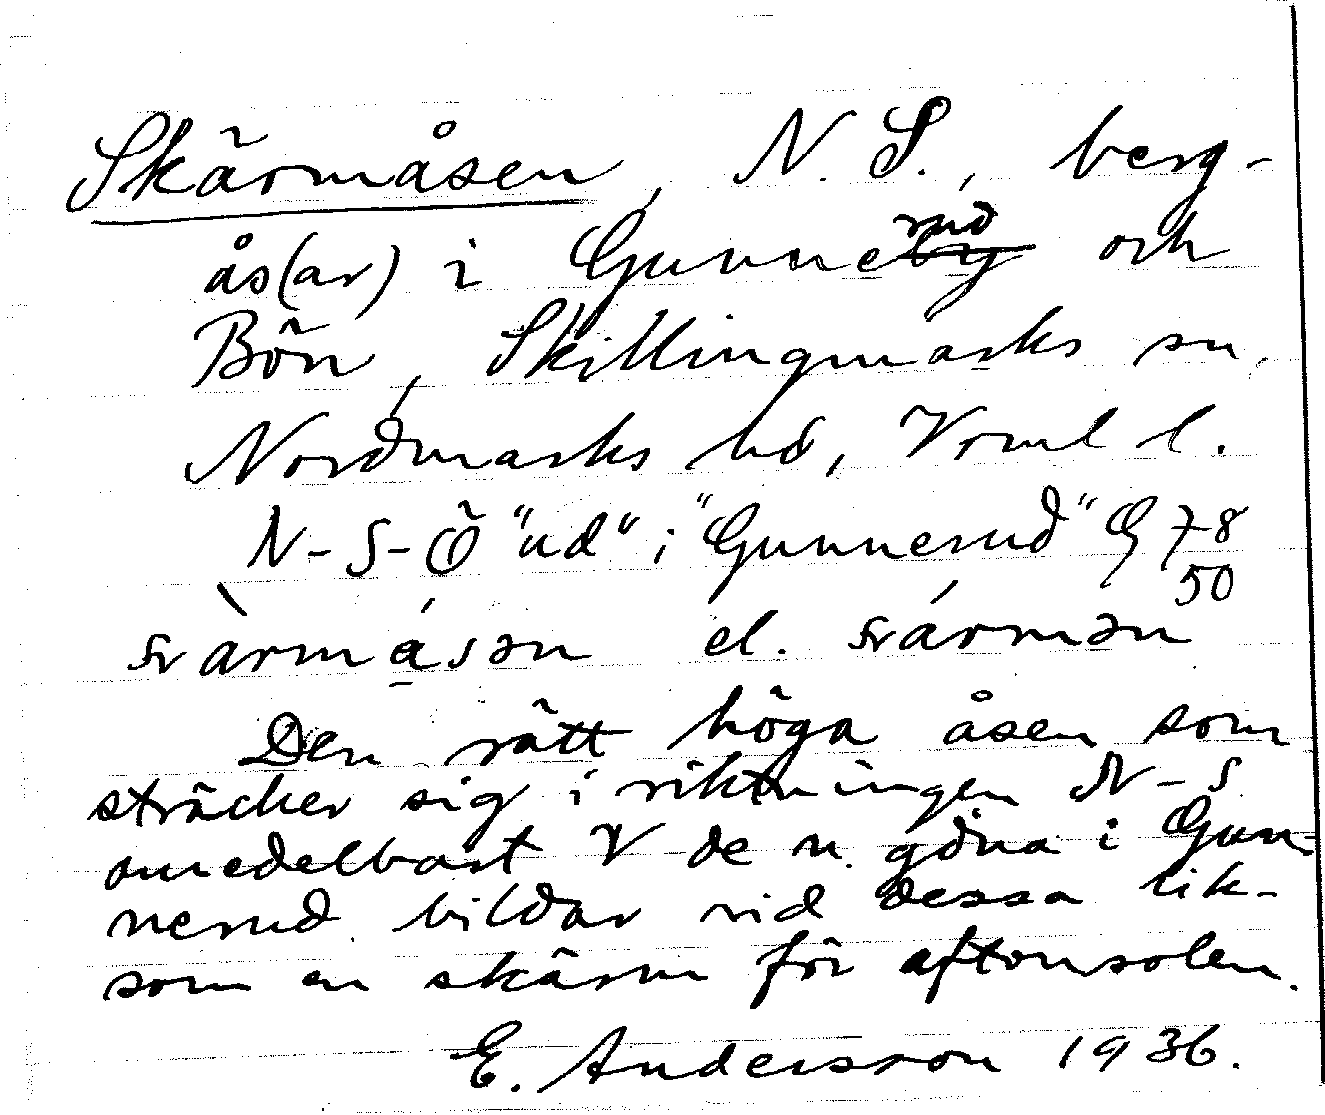 Skärmåsen, N. S., berg-
ås(ar) i Gunnerud och
Bön, Skillingmarks sn,
Nordmarks hd, Vrml l.
N-S-Ö "ud" i "Gunnerud" G 78
50
àrmåsən el. ármən
Den rätt höga åsen som
sträcker sig i riktningen N-S
omedelbart V de n. gdna i Gun-
nerud bildar vid dessa lik-
som en skärm för aftonsolen.
E. Andersson 1936.